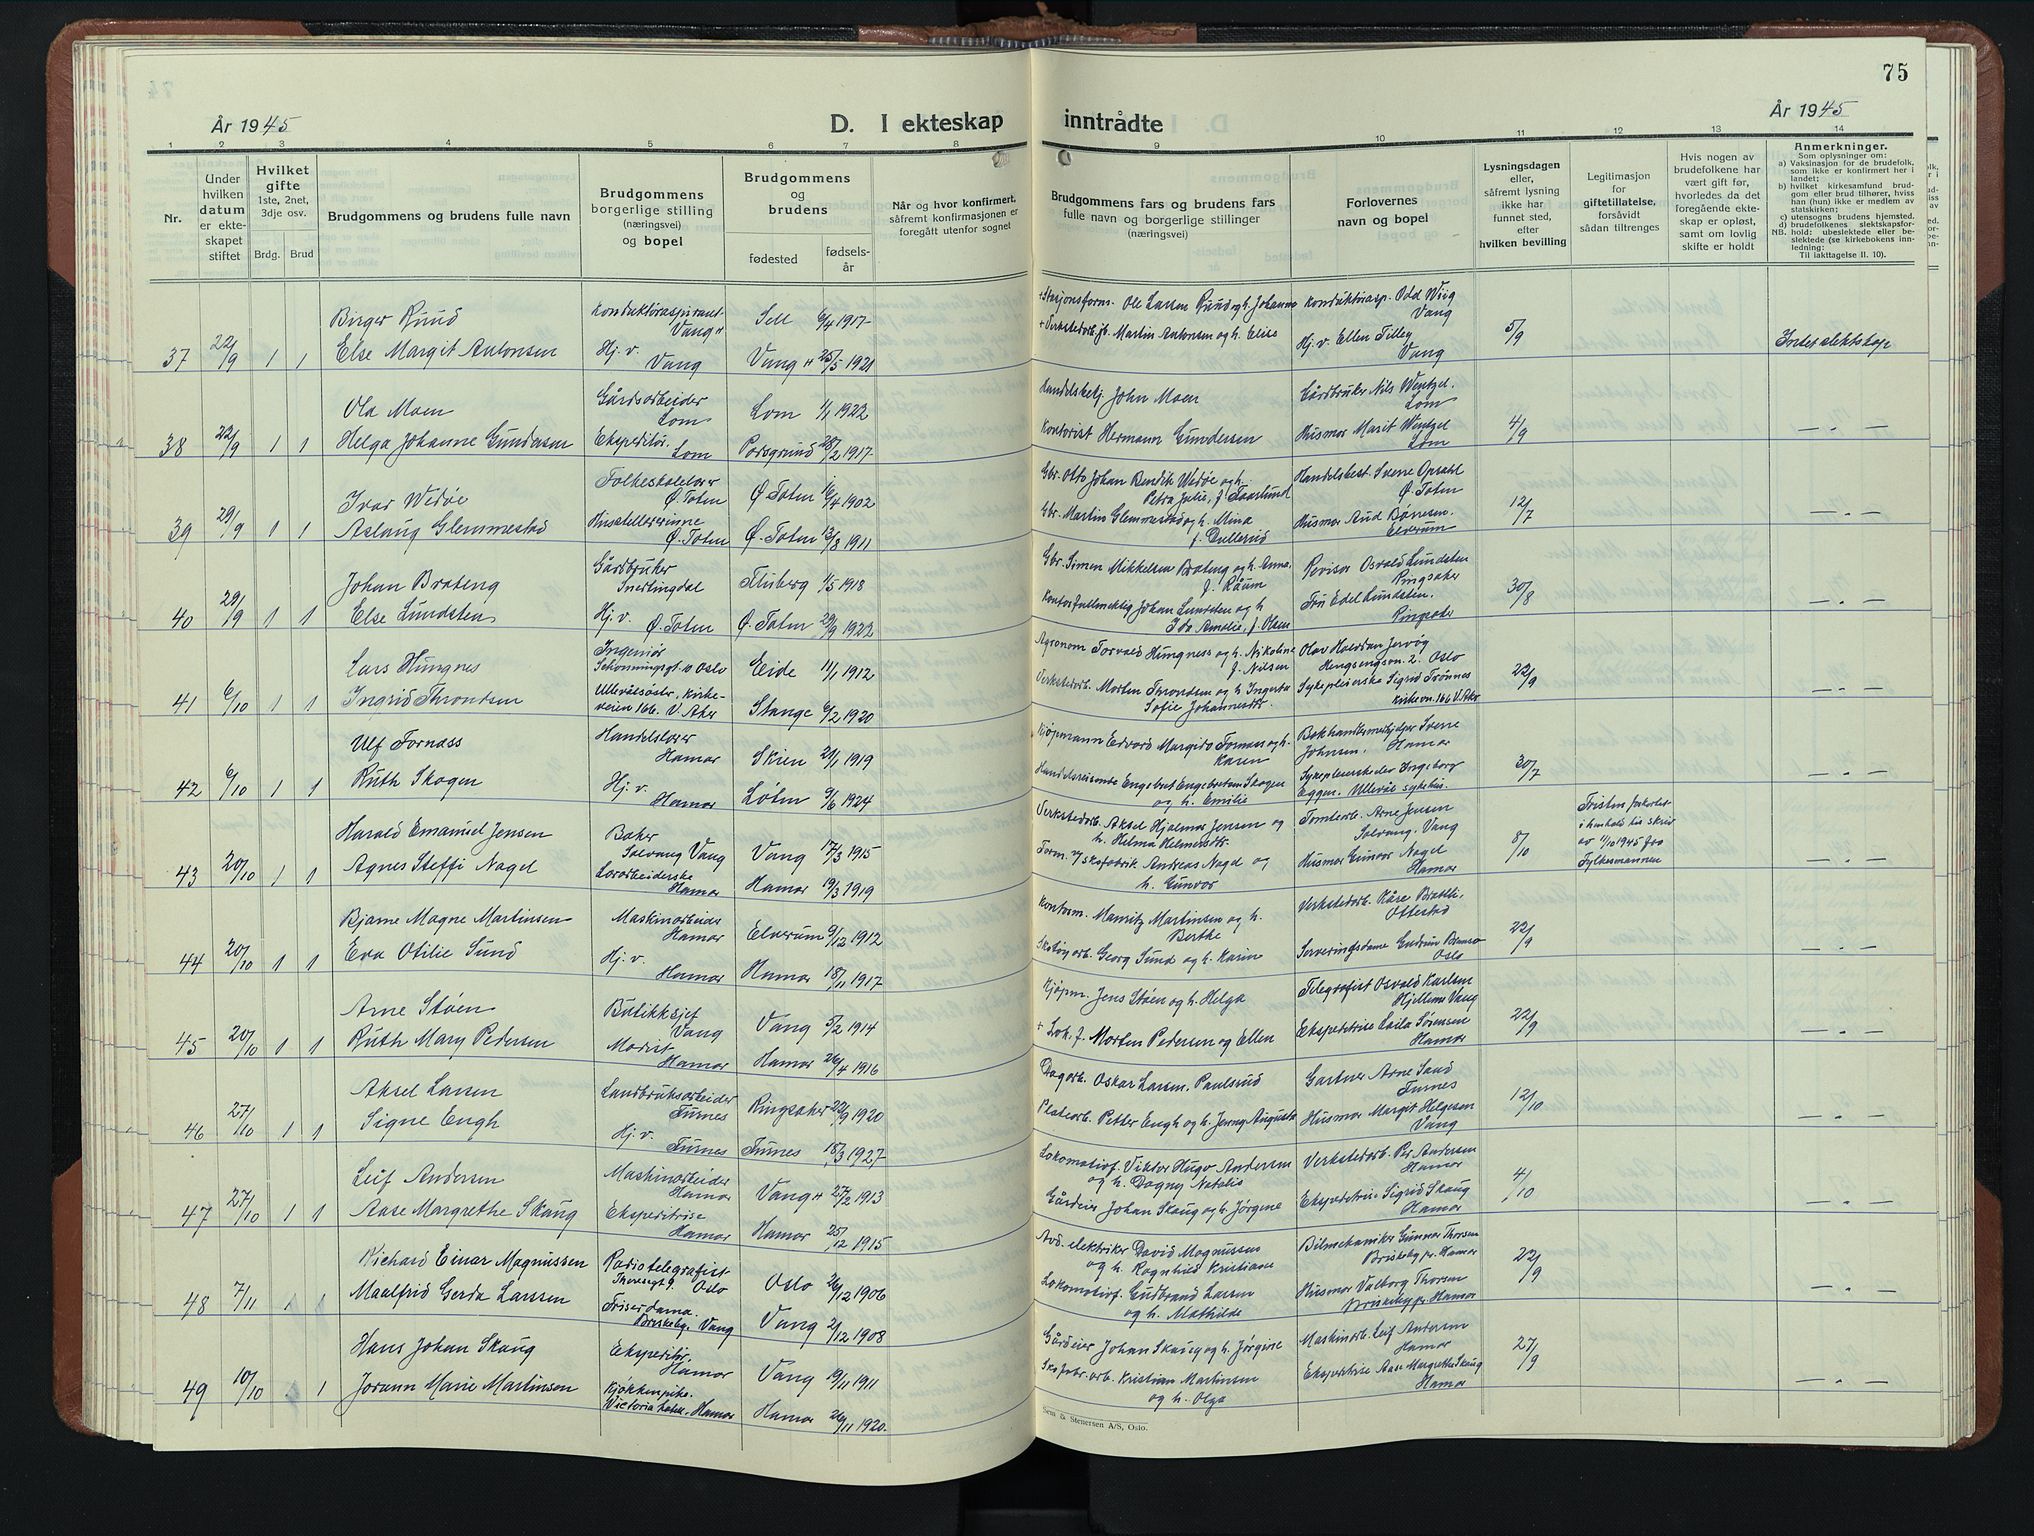 75
År 1945
D. I ekteskap inntrådte
År 1945
1 2 3 4 5 6 7 8 9 10 11 12 13 14
Nr.
Under hvilken datum er ekteskapet stiftet
Hvilket gifte 1ste, 2net, 3dje osv.
Brdg. Brud
Brudgommens og brudens fulle navn
Brudgommens borgerlige stilling (næringsvei) og bopel
Brudgommens og brudens
fødested
fødselsår
Når og hvor konfirmert, såfremt konfirmasjonen er foregått utenfor sognet
Brudgommens fars og brudens fars fulle navn og borgerlige stillinger (næringsvei)
Forlovernes navn og bopel
Lysningsdagen eller, såfremt lysning ikke har funnet sted, efter hvilken bevilling
Legitimasjon for giftetillatelse, forsåvidt sådan tiltrenges
Hvis nogen av brudefolkene har vært gift før, hvorledes da det foregående ekteskap er opløst, samt om lovlig skifte er holdt
Anmerkninger.
Som oplysninger om:
a) Vaksinasjon for de brudefolk, som ikke er konfirmert her i landet;
b) hvilket kirkesamfund brudgom eller brud tilhører, hviss han (hun) ikke er medlem av statskirken;
c) utensogns brudens hjemsted.
d) brudefolkenes slektskapsforhold: ubeslektede eller beslektede (se kirkebokens innledning:
NB.
Til iakttagelse II. 10).
37 22/9 1 1
Birger Ruud
Konduktøraspirant Vang H
Sell 6/4 1917
+ Stasjonsform. Ole Larsen Ruud og h. Johanne
Konduktørasp. Odd Wiig Vang
5/9
Else Margit Antonsen
Hj. v. Vang
Vang H 25/5 1921
+ Verkstedarb. Martin Antonsen og h. Elise
Hj. v. Ellen Tilley Vang
Intet slektskap
38 22/9 1 1
Ola Moen
Gårdsarbeider Lom
Lom 1/1 1922
Handelsbetj. John Moen
Gårdbruker Nils Wentzel. Lom
4/9
Helga Johanne Gundersen
Ekspeditør. Lom
Porsgrund 28/2 1917
Kontorist Hermann Gundersen
Husmor Marit Wentzel Lom
— " —
39 29/9 1 1
Ivar Wedøe
Folkeskolelærer Ø. Toten
Ø. Toten 16/4 1902
Gbr. Otto Johan Bendik Wedøe og h. Petra Julie, f. Faarlund
Handelsbest. Sverre Opsahl Ø. Toten
12/7
Aslaug Glemmestad
Husstellærerinne Ø. Toten
Ø. Toten 13/8 1911
Gbr. Martin Glemmestad og h. Mina f. Dullerud
Husmor Aud Bønesen. Elverum
— " —
40 29/9 1 1
Johan Brateng
Gårdbruker Snertingdal
Fluberg 1/5 1918
Gbr. Simen Mikkelsen Brateng og h. Anna, f. Råum
Revisor Osvald Lundsten Ringsaker
30/8
Else Lundsten
Hj. v. Ø. Toten
Ø. Toten 29/9 1922
Kontorfullmektig Johan Lundsten og h Ida Amalie, f. Olsen
Fru Edel Lundsten. Ringsaker
— " —
41 6/10 1 1
Lars Hungnes
Ingeniør Schønningsgt. 10 Oslo
Eide 11/1 1912
Agronom Torvald Hungness og h. Nikoline f. Nilsen
Olav Halvdan Jervøg Hengsengsvn. 2. Oslo
22/9
Ingrid Throndsen
Ullevålsøstr. Kirkeveien 166. V. Aker
Stange 6/2 1920
Verkstedarb. Morten Throndsen og h Ingerta Sofie Johannesdtr.
Sykepleierske Sigrid Trønnes Kirkevn. 166 V. Aker
— " —
42 6/10 1 1
Ulf Fornæss
Handelslærer Hamar
Skien 21/1 1919
Kjøpmann Edvard Margido Fornæss og h. Karen
Bokhandlermedhjelper Sverre Johnsen. Hamar
30/7
Ruth Skogen
Hj. v. Hamar
Løten 9/6 1924
Handelsreisende Engebret Engebretsen Skogen og h. Emilie
Sykepleierskeelev Ingeborg Eggen. Ullevål sykehus.
— " —
43 20/10 1 1
Harald Emanuel Jensen
Baker Solvang Vang
Vang 17/3 1915
Verkstedarb. Aksel Hjalmar Jensen og h. Helma Helmersdtr.
Tomtearb. Arne Jensen Solvang. Vang
8/10
Fristen forkortet i henhold til skriv av 11/10 1945 fra Fylkesmannen
Agnes Steffi Nagel
Lærarbeiderske Hamar
Hamar 19/3 1919
Form. v/ skofabrik Andreas Nagel og h. Gunvor
Husmor Gunvor Nagel Hamar
— " —
44 20/10 1 1
Bjarne Magne Martinsen
Maskinarbeider Hamar
Elverum 9/12 1912
Kontorm. Mauritz Martinsen og h. Berthe
Verkstedarb. Kåre Bratli. Ottestad
22/9
Eva Otilie Sund
Hj. v. Hamar
Hamar 18/11 1917
Skotøyarb. Georg Sund og h. Karine
Serveringsdame Gudrun Oslo
— " —
45 20/10 1 1
Arne Støen
Butikksjef Vang
Vang 5/2 1914
Kjøpm. Jens Støen og h. Helga
Telegrafist Osvald Karlsen Hjellum Vang
22/9
Ruth Mary Pedersen
Modist Hamar
Hamar 26/4 1916
+ Lok. f. Morten Pedersen og Ellen
Ekspeditrise Laila Sørensen Hamar
— " —
46 27/10 1 1
Aksel Larsen
Landbruksarbeider Furnes
Ringsaker 22/9 1920
Dagarb. Oskar Larsen, Paulsrud
Gartner Arne Sand Furnes
12/10
Signe Engh
Hj. v. Furnes
Furnes 18/3 1927
Platearb. Petter Engh og h. Jenny Augusta
Husmor Margit Helgesen Vang
— " —
47 27/10 1 1
Leif Andersen
Maskinarbeider Hamar
Vang H 27/2 1913
Lokomotivf. Viktor Hugo Andersen og h. Dagny Natalis
Verkstedarb. Per Andersen Hamar
4/10
Aase Margrethe Skaug
Ekspeditrise Hamar
Hamar 25/12 1915
Gårdeier Johan Skaug og h. Jørgine
Ekspeditrise Sigrid Skaug Hamar
— " —
48 7/11 1 1
Richard Einar Magnussen
Radiotelegrafist Oslo
Oslo 26/12 1906
Avd. elektriker David Magnussen og h. Ragnhild Kristiane
Bilmekaniker Gunnar Thorsen Briskeby pr. Hamar
22/9
Maalfrid Gerda Larssen
Friserdama. Briskeby. Vang
Vang 2/12 1908
Lokomotivf. Gudbrand Larssen og h. Mathilde
Husmor Valborg Thorsen Briskeby pr. Hamar
— " —
49 10/10 1
Hans Johan Skaug
Ekspeditør. Hamar
Vang 19/11 1911
Gårdeier Johan Skaug og h. Jørgine
Maskinarb. Leif Andersen Hamar
27/9
Jorann Marie Martinsen
Kjøkkenpike. Victoria hotell. Hamar
Hamar 26/11 1920.
Skofabr. arb. Kristian Martinsen og h. Olga
Ekspeditrise Aase Margrethe Skaug Hamar
— " —
Sem & Stenersen A/S, Oslo.